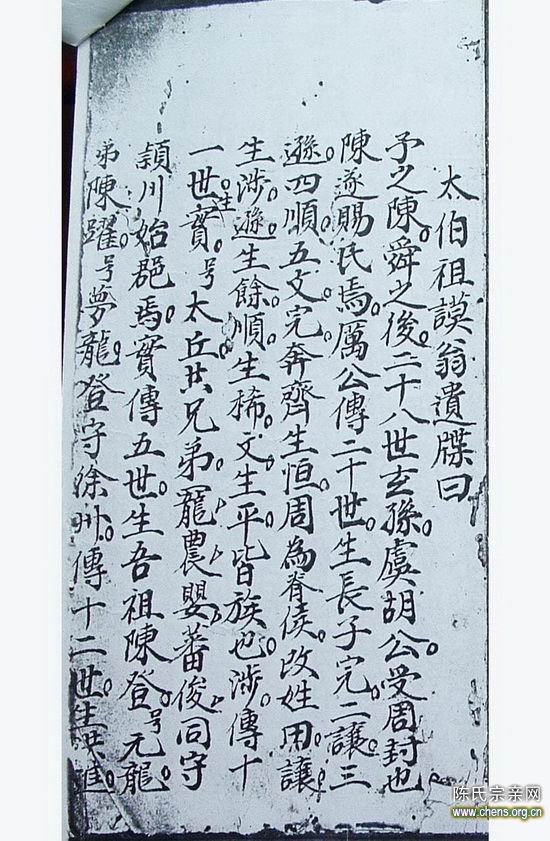 太伯祖謨翁遺牒曰
予之陳。舜之後。二十八世玄孫。虞胡公。受周封也。
陳遂賜氏焉。厲公傳二十世。生長子完。二讓。三
遜。四順。五文。完奔齊生恒。周為脊侯。改姓用。讓。
生涉。遜生餘。順生稀。文生平。皆族也。涉。傳十
一世。生寔。号太丘。共兄弟。寵農嬰蕃俊同守
潁川始邑焉。寔傳五世。生吾祖陳登。号元龍。
弟陳躍。号夢龍。登守徐州。傳十二世。生洪進。
陈氏宗亲网
www.chens.org.cn